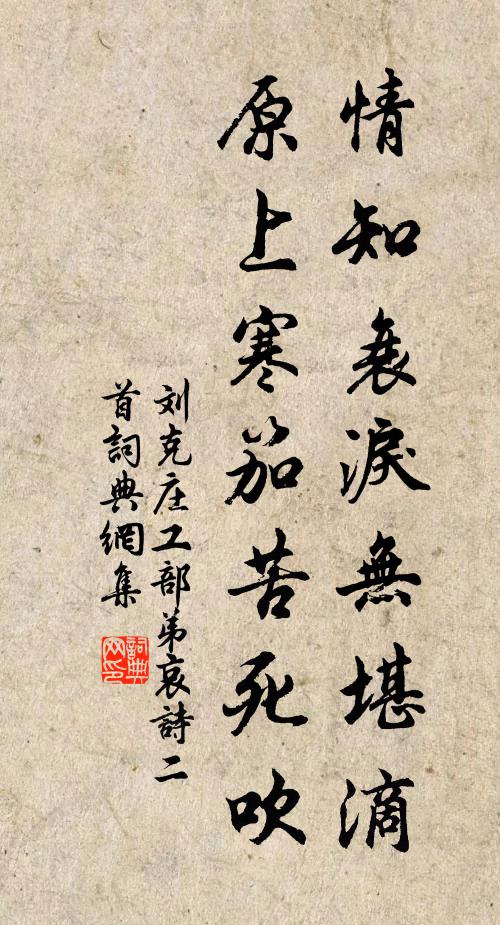 情知衰淚無堪滴
原上寒笳苦死吹
刘克庄工部弟哀詩二
首詞典網集
詞典
网印